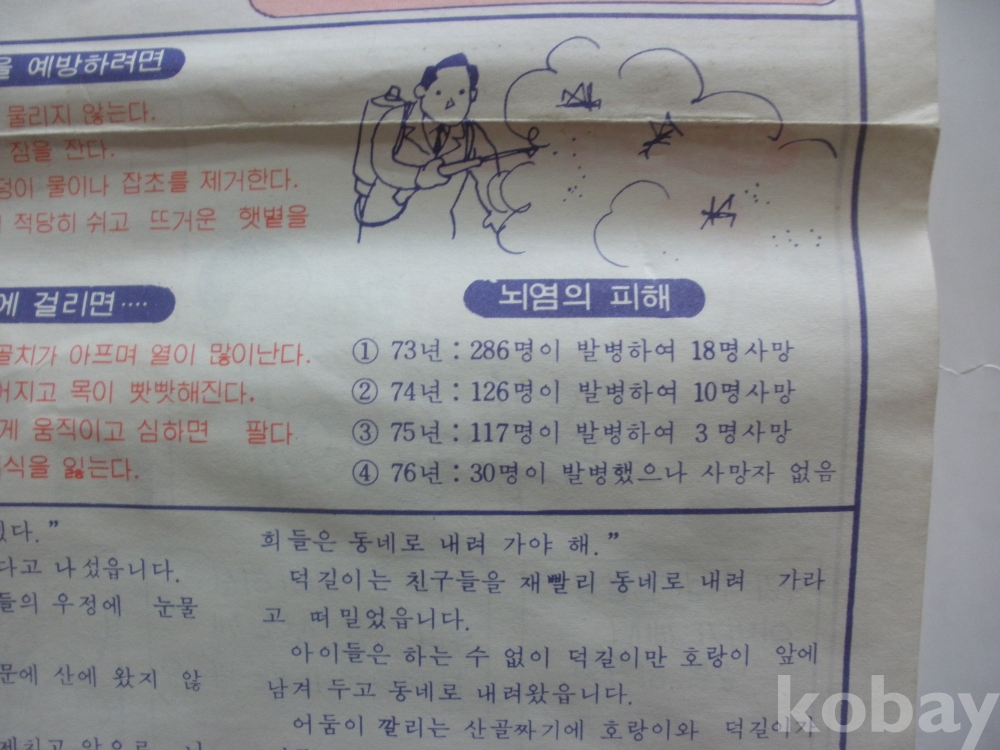 을 예방하려면
물리지 않는다.
잠을 잔다.
덩이 물이나 잡초를 제거한다.
적당히 쉬고 뜨거운 햇볕을
에 걸리면····
골치가 아프며 열이 많이난다.
어지고 목이 빳빳해진다.
게 움직이고 심하면 팔다
식을 잃는다.
뇌염의 피해
① 73년 : 286명이 발병하여 18명사망
② 74년 : 126명이 발병하여 10명사망
③ 75년 : 117명이 발병하여 3명사망
④ 76년 : 30명이 발병했으나 사망자 없음
다.”
다고 나섰읍니다.
들의 우정에 눈물
문에 산에 왔지 않
희들은 동네로 내려 가야 해.”
덕길이는 친구들을 재빨리 동네로 내려 가라
고 떠밀었읍니다.
아이들은 하는 수 없이 덕길이만 호랑이 앞에
남겨 두고 동네로 내려왔읍니다.
어둠이 깔리는 산골짜기에 호랑이와 덕길이가
kobay